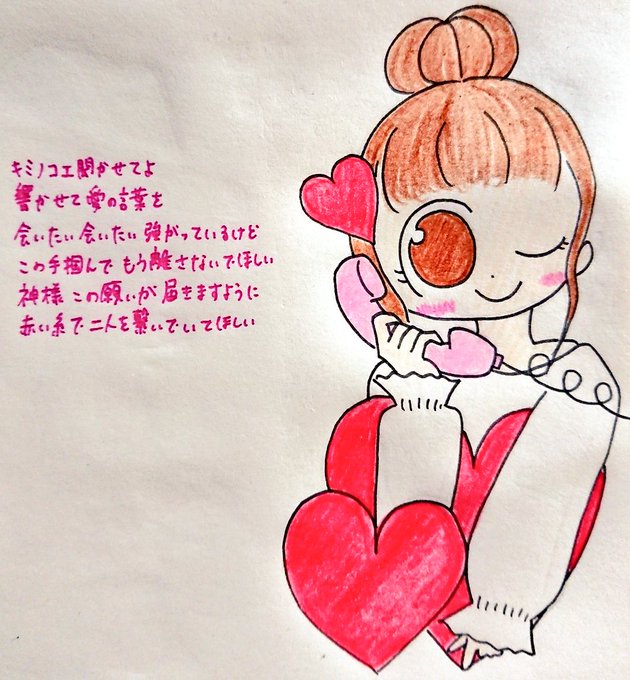 キミノコエ聞かせてよ
響かせて愛の言葉を
会いたい会いたい強がっているけど
この手掴んでもう離さないでほしい
神様この願いが届きますように
赤い糸で二人を繋いでいてほしい